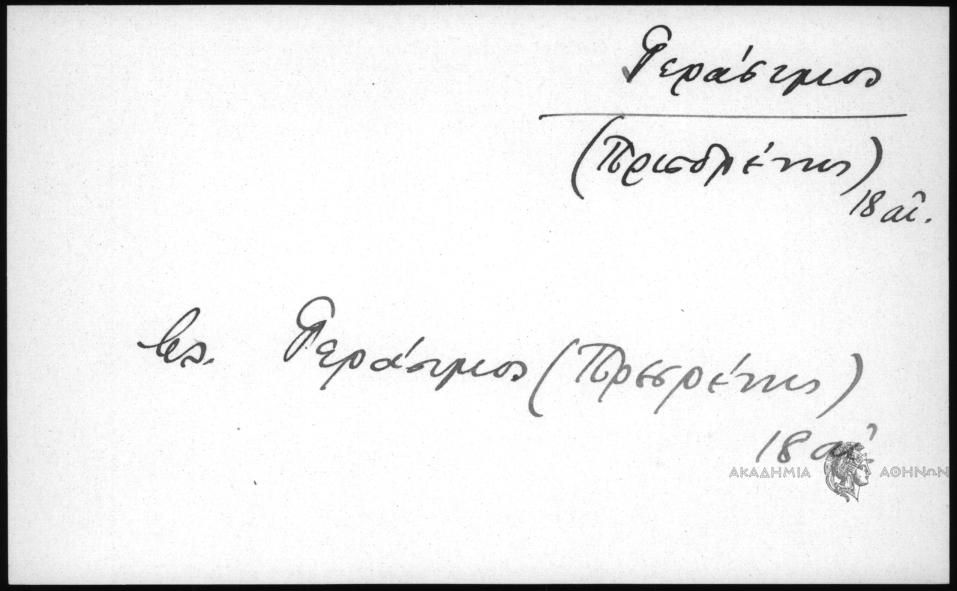 Γεράσιμος
(Πρισδρένης)
18 αἰ.
βλ. Γεράσιμος (Πρεσρένης)
18 αἰ
ΑΚΑΔΗΜΙΑ ΑΘΗΝΩΝ